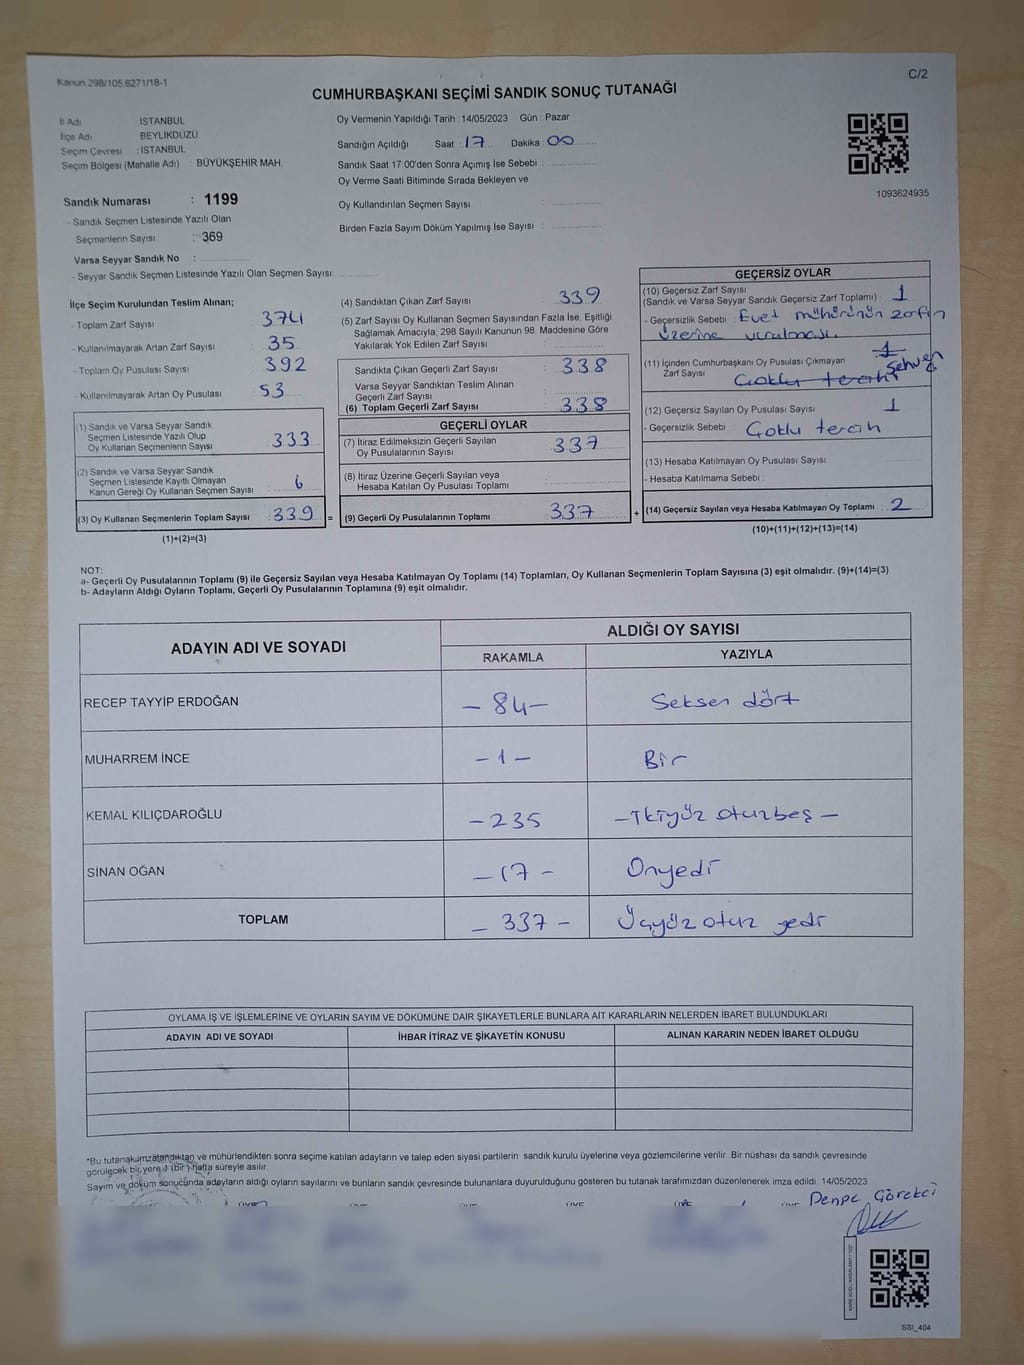 Kanun 298/105 6271/18-1
C/2
CUMHURBAŞKANI SEÇİMİ SANDIK SONUÇ TUTANAĞI
İl Adı İSTANBUL
İlçe Adı BEYLİKDÜZÜ
Seçim Çevresi : İSTANBUL
Seçim Bölgesi (Mahalle Adı) : BÜYÜKŞEHİR MAH
Sandık Numarası : 1199
- Sandık Seçmen Listesinde Yazılı Olan
Seçmenlerin Sayısı : 369
Varsa Seyyar Sandık No :
- Seyyar Sandık Seçmen Listesinde Yazılı Olan Seçmen Sayısı:
Oy Vermenin Yapıldığı Tarih : 14/05/2023 Gün : Pazar
Sandığın Açıldığı Saat : 17 Dakika : 00
Sandık Saat 17:00'den Sonra Açımış İse Sebebi :
Oy Verme Saati Bitiminde Sırada Bekleyen ve
Oy Kullandırılan Seçmen Sayısı :
Birden Fazla Sayım Döküm Yapılmış İse Sayısı :
1093624935
İlçe Seçim Kurulundan Teslim Alınan;
- Toplam Zarf Sayısı : 374
- Kullanılmayarak Artan Zarf Sayısı : 35
- Toplam Oy Pusulası Sayısı : 392
- Kullanılmayarak Artan Oy Pusulası : 53
(1) Sandık ve Varsa Seyyar Sandık
Seçmen Listesinde Yazılı Olup
Oy Kullanan Seçmenlerin Sayısı : 333
(2) Sandık ve Varsa Seyyar Sandık
Seçmen Listesinde Kayıtlı Olmayan
Kanun Gereği Oy Kullanan Seçmen Sayısı : 6
(3) Oy Kullanan Seçmenlerin Toplam Sayısı : 339 =
(1)+(2)=(3)
(4) Sandıktan Çıkan Zarf Sayısı : 339
(5) Zarf Sayısı Oy Kullanan Seçmen Sayısından Fazla İse, Eşitliği
Sağlamak Amacıyla; 298 Sayılı Kanunun 98. Maddesine Göre
Yakılarak Yok Edilen Zarf Sayısı :
Sandıkta Çıkan Geçerli Zarf Sayısı : 338
Varsa Seyyar Sandıktan Teslim Alınan
Geçerli Zarf Sayısı :
(6) Toplam Geçerli Zarf Sayısı : 338
GEÇERLİ OYLAR
(7) İtiraz Edilmeksizin Geçerli Sayılan
Oy Pusulalarının Sayısı : 337
(8) İtiraz Üzerine Geçerli Sayılan veya
Hesaba Katılan Oy Pusulası Toplamı :
(9) Geçerli Oy Pusulalarının Toplamı : 337 +
GEÇERSİZ OYLAR
(10) Geçersiz Zarf Sayısı
(Sandık ve Varsa Seyyar Sandık Geçersiz Zarf Toplamı) : 1
- Geçersizlik Sebebi : Evet mühürünün zarfın
üzerine vurulması.
(11) İçinden Cumhurbaşkanı Oy Pusulası Çıkmayan 1 Sehven
Zarf Sayısı : Çoklu tercih
(12) Geçersiz Sayılan Oy Pusulası Sayısı : 1
- Geçersizlik Sebebi : Çoklu tercih
(13) Hesaba Katılmayan Oy Pusulası Sayısı :
- Hesaba Katılmama Sebebi :
(14) Geçersiz Sayılan veya Hesaba Katılmayan Oy Toplamı : 2
(10)+(11)+(12)+(13)=(14)
NOT:
a- Geçerli Oy Pusulalarının Toplamı (9) ile Geçersiz Sayılan veya Hesaba Katılmayan Oy Toplamı (14) Toplamları, Oy Kullanan Seçmenlerin Toplam Sayısına (3) eşit olmalıdır. (9)+(14)=(3)
b- Adayların Aldığı Oyların Toplamı, Geçerli Oy Pusulalarının Toplamına (9) eşit olmalıdır.
ADAYIN ADI VE SOYADI
ALDIĞI OY SAYISI
RAKAMLA YAZIYLA
RECEP TAYYİP ERDOĞAN - 84 - Seksen dört
MUHARREM İNCE - 1 - Bir
KEMAL KILIÇDAROĞLU - 235 - İkiyüz otuzbeş -
SİNAN OĞAN - 17 - Onyedi
TOPLAM - 337 - Üçyüz otuz yedi
OYLAMA İŞ VE İŞLEMLERİNE VE OYLARIN SAYIM VE DÖKÜMÜNE DAİR ŞİKAYETLERLE BUNLARA AİT KARARLARIN NELERDEN İBARET BULUNDUKLARI
ADAYIN ADI VE SOYADI İHBAR İTİRAZ VE ŞİKAYETİN KONUSU ALINAN KARARIN NEDEN İBARET OLDUĞU
*Bu tutanak imzalandıktan ve mühürlendikten sonra seçime katılan adayların ve talep eden siyasi partilerin sandık kurulu üyelerine veya gözlemcilerine verilir. Bir nüshası da sandık çevresinde
görülecek bir yere 1 (bir) hafta süreyle asılır.
Sayım ve döküm sonucunda adayların aldığı oyların sayılarını ve bunların sandık çevresinde bulunanlara duyurulduğunu gösteren bu tutanak tarafımızdan düzenlenerek imza edildi. 14/05/2023
SSI_404